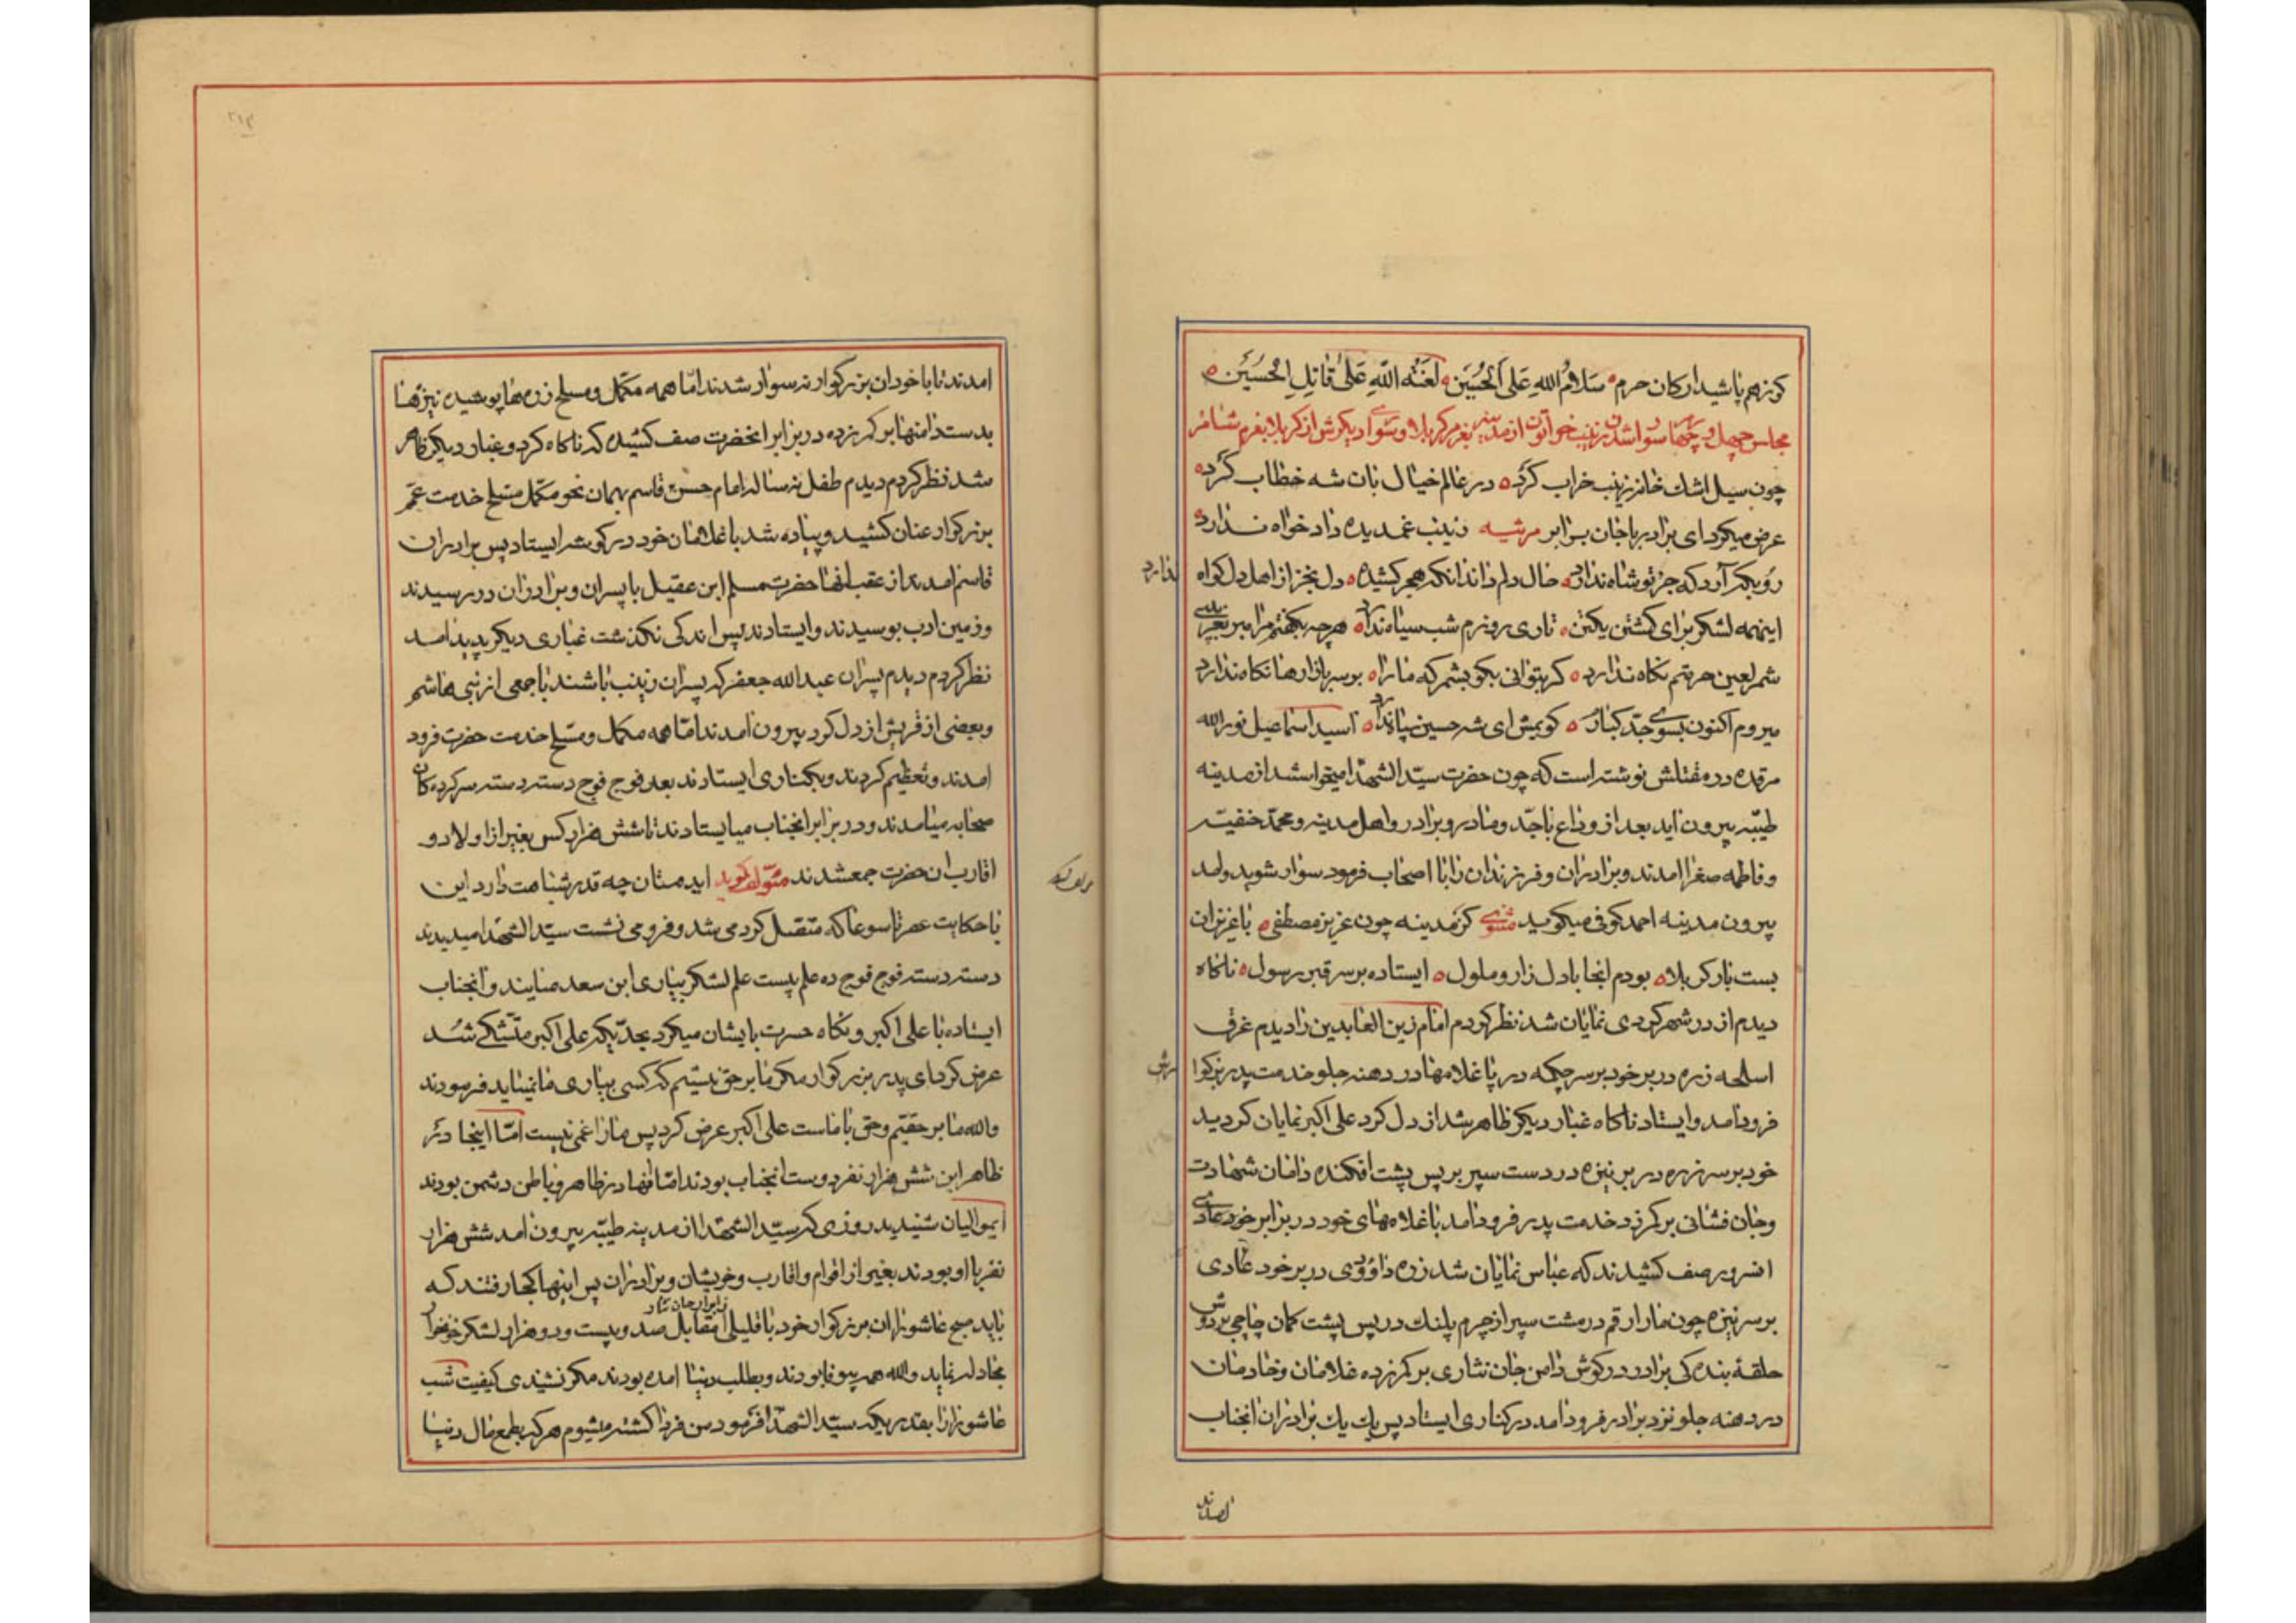 کز هم پاشید ارکان حرم سَلامُ اللهِ عَلَی الحُسَیَن لَعنَةُ اللهِ عَلیٰ قاتِلِ الحُسَیْن
مجلس چهل و چهارم سوار شدن زینب خواتون از مدینه بعزم کربلا و سوای دیگرش از کربلا بعزم شام
چون سیل اشک خانه زینب خراب کرد در عالم خیال بان شه خطاب کرد
عرض میکرد ای برادر با جان برابر مرثیه زینب غمدیده دادخواه ندارد
رو بکه آرد که جز تو شاه ندارد حال دلم داند آنکه هجر کشیده دل بخبر از اهل دل کواه
ندارد
اینهمه لشکر برای کشتن یکتن تاری روزم شب سیاه ندارد هر چه بکفتم مرا مبر
شمر لعین حرمتم نکاه ندارد کر بتوانی بکو بشمر که ما را بر سر بازارها نکاه ندارد
میروم اکنون بسوی جد کبار کویمش ای شه حسین سپاه ندارد اسید اسماعیل نورالله
مرقده در مقتلش نوشته است که چون حضرت سیّد الشهدا میخواست از مدینه
طیّبه بیرون آید بعد از وداع با جدّ و مادر و برادر و اهل مدینه و محمّد حنفیّه
و فاطمه صغرا امدند و برادران و فرزندان را با اصحاب فرمود سوار شوید
بیرون مدینه احمد کوفی میکوید مثنوی کز مدینه چون عزیز مصطفی با عزیزان
بست بار کربلا بودم انجا با دل زار و ملول ایستاده بر سر قبر رسول ناکاه
دیدم از در شهر کردی نمایان شد نظر کردم امام زین العابدین را دیدم غرق
اسلحه زره در بر خود بر سر چکمه در پا غلامها در دهنه جلو خدمت پدر بزرکوارش
فرود امد و ایستاد ناکاه غبار دیکر ظاهر شد از دل کرد علی اکبر نمایان کردید
خود بر سر زره در بر نیزه در دست سپر بر پس پشت افکنده دامان شهادت
و جان فشانی بر کمر زد خدمت پدر فرود امد با غلامهای خود در برابر خود
انسرور صف کشیدند که عباس نمایان شد زره داوودی در بر خود عادی
بر سر نیزه چون مار ارقم در مشت سپر از چرم پلنک در پس پشت کمان چاچی بر دوش
حلقهٔ بندکی برادر در کوش دامن جان نثاری بر کمر زده غلامان و خادمان
در دهنه جلو نزد برادر فرود امد در کناری ایستاد پس یک یک برادران انجناب
امدند تا با خود ان بزرکوار نه سوار شدند امّا همه مکمّل و مسلح زره ها پوشیده نیزها
بدست دامنها بر کمر زده در برابر انحضرت صف کشیده که ناکاه کرد و غبار دیکر ظاهر
شد نظر کردم دیدم طفل نه ساله امام حسن قاسم بهمان نحو مکمّل مسلح خدمت عمّ
بزرکوار عنان کشید و پیاده شد با غلامان خود در کوشه ایستاد پس برادران
قاسم امدند از عقب انها حضرت مسلم ابن عقیل با پسران و برادران در رسیدند
و زمین ادب بوسیدند و ایستادند پس اندکی نکذشت غباری دیکر پدید امد
نظر کردم دیدم پسران عبدالله جعفر که پسران زینب باشند با جمعی از بنی هاشم
و بعضی از قریش از دل کرد بیرون امدند امّا همه مکمل و مسلح خدمت حضرت فرود
امدند و تعظیم کردند و بکناری ایستادند بعد فوج فوج دسته دسته سرکرده کان
صحابه میامدند و در برابر انجناب میایستادند تا شش هزار کس بغیر از اولاد و
اقارب ان حضرت جمع شدند مؤلف کوید ایدوستان چه قدر شباهت دارد این
با حکایت عصر تاسوعا که متصل کرد می شد و فرو می نشست سیّد الشهدا میدیدند
دسته دسته فوج فوج ده علم بیست علم لشکر بیاری ابن سعد میایند و انجناب
ایستاده با علی اکبر و نکاه حسرت بایشان میکرد بحدّیکه علی اکبر متشکّی شد
عرض کرد ای پدر بزرکوار مکر ما بر حق نیستیم که کسی بیاری ما نمیاید فرمودند
والله ما بر حقّیم و حق با ماست علی اکبر عرض کرد پس ما را غمی نیست امّا اینجا در
ظاهر این شش هزار نفر دوست انجناب بودند امّا انها در ظاهر و باطن دشمن بودند
ایموالیان شنیدید روزی که سیّد الشهدا از مدینه طیّبه بیرون امد شش هزار
نفر با او بودند بغیر از اقوام و اقارب و خویشان و برادران پس اینها کجا رفتند که
باید صبح عاشورا ان بزرکوار خود با قلیلی مقابل صد و بیست و دو هزار لشکر خونخوار
مجادله نماید والله همه بیوفا بودند و بطلب دنیا امده بودند مکر نشنیدی کیفیت شب
عاشورا را بقدریکه سیّد الشهدا فرمود من فردا کشته میشوم هر که بطمع مال دنیا